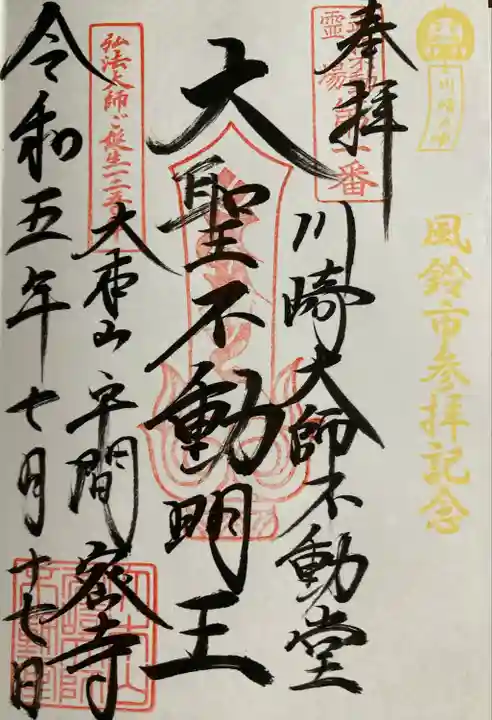 風鈴市参拝記念
奉拝
川崎大師不動堂
大聖不動明王
弘法大師ご誕生一二五
大本山平間密寺
令和五年七月十七日